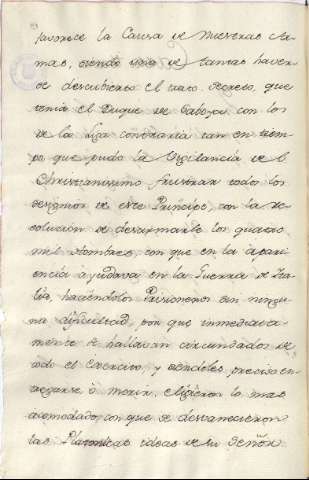 favorece la Causa de nuestras Ar-
mas, siendo una de tantas haver-
se descubierto el trato secreto, que
tenia el Duque de Saboya, con los
de la Liga contraria tan en tiem-
po que pudo la Vigilancia de el
Christianissimo frustrar todos los
designios de este Principe, con la re-
solucion de desarmarle los quatro
mil Hombres, con que en la apari-
encia ayudava en la Guerra de Ita-
lia, haciendolos Prisioneros sin ningu-
na dificultad, por que immediata-
mente se hallaron circundados de
todo el Exercito, y siendoles preciso en-
tregarse ò morir, eligieron lo mas
acomodado, con que se desvanecieron
las Platonicas ideas de su Señor